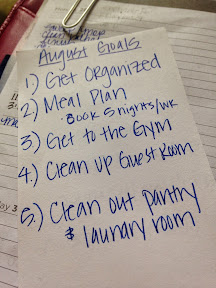 August Goals
1.) Get Organized
2) Meal Plan
- Book 5 nights/wk
3) Get to the Gym
4.) Clean up Guest Room
5.) Clean out pantry
& laundry room